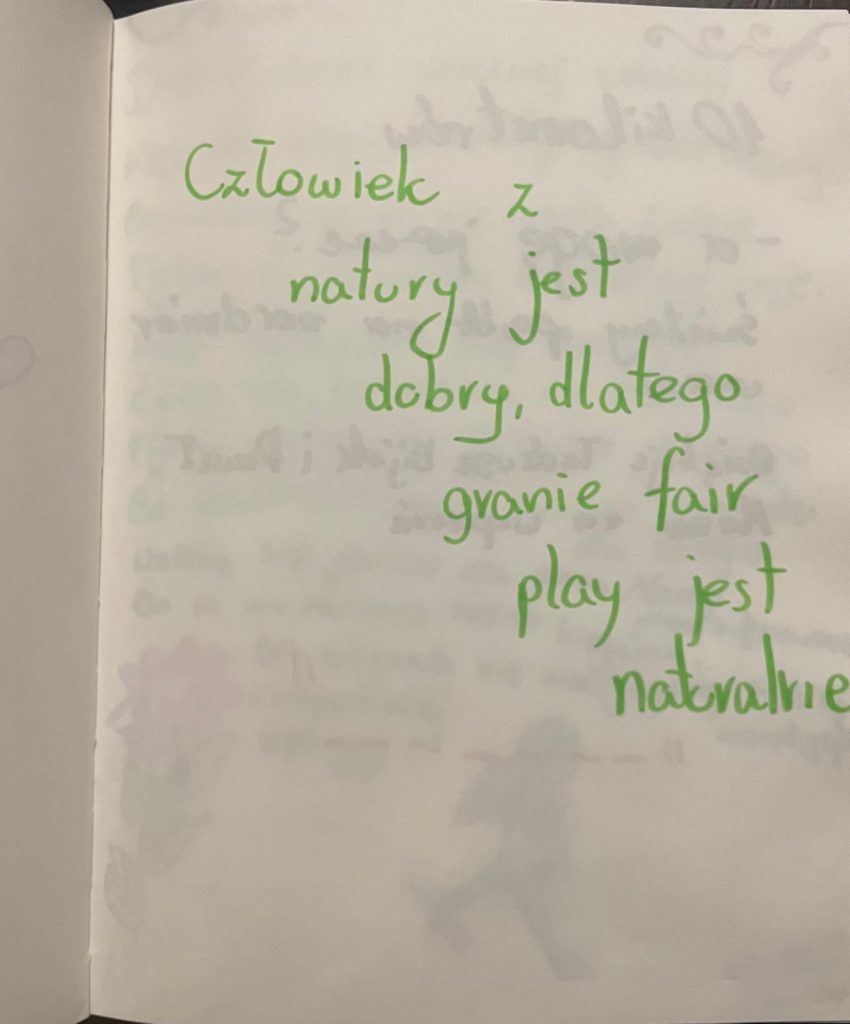 Człowiek z
natury jest
dobry, dlatego
granie fair
play jest
naturalnie